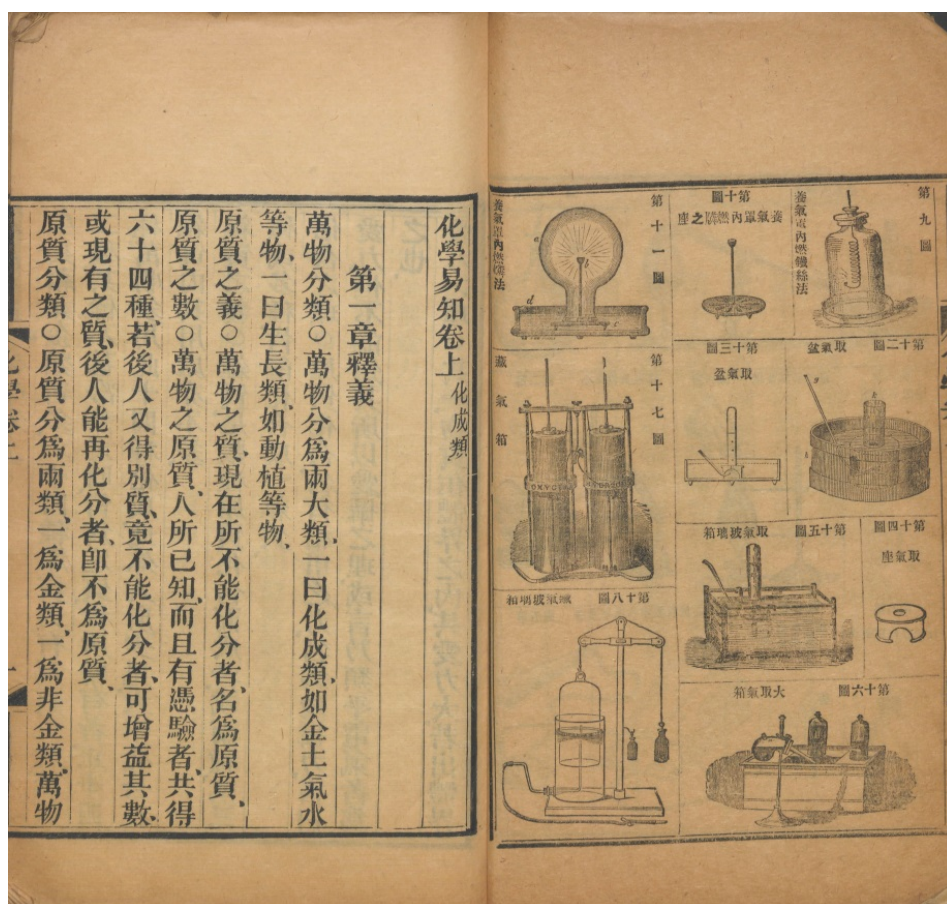 第九圖
養氣罩內燃鐵絲法
第十圖
養氣罩內燃燐之座
第十一圖
養氣罩內燃燐法
第十二圖
取氣盆
第十三圖
取氣盆
第十四圖
取氣座
第十五圖
取氣玻璃箱
第十六圖
火取氣箱
第十七圖
藏氣箱
OXYGEN
第十八圖
藏氣玻璃箱
化學易知卷上 化成類
第一章釋義
萬物分類○萬物分爲兩大類、一曰化成類、如金土氣水
等物、一曰生長類、如動植等物、
原質之義○萬物之質、現在所不能化分者、名爲原質、
原質之數○萬物之原質、人所已知、而且有憑驗者、共得
六十四種、若後人又得別質、竟不能化分者、可增益其數、
或現有之質、後人能再化分者、卽不爲原質、
原質分類○原質分爲兩類、一爲金類、一爲非金類、萬物
化學卷上
一